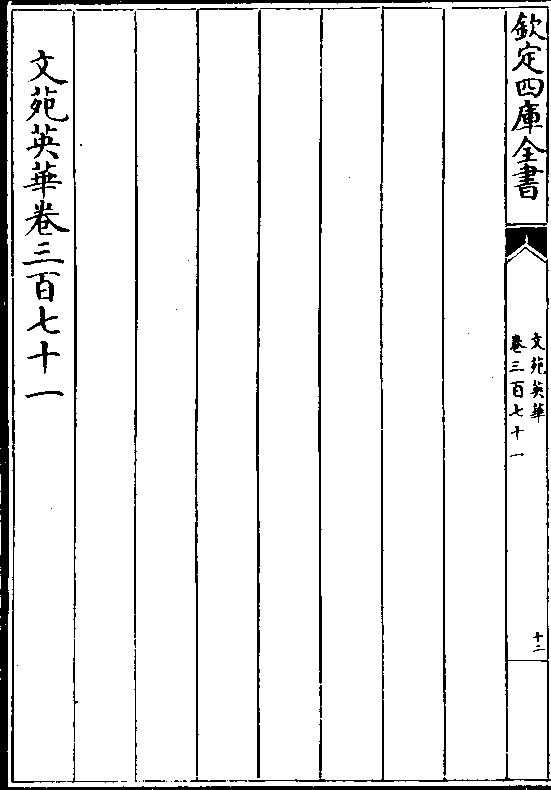 欽定四庫全書
文苑英華
卷三百七十一
十二
文苑英華卷三百七十一